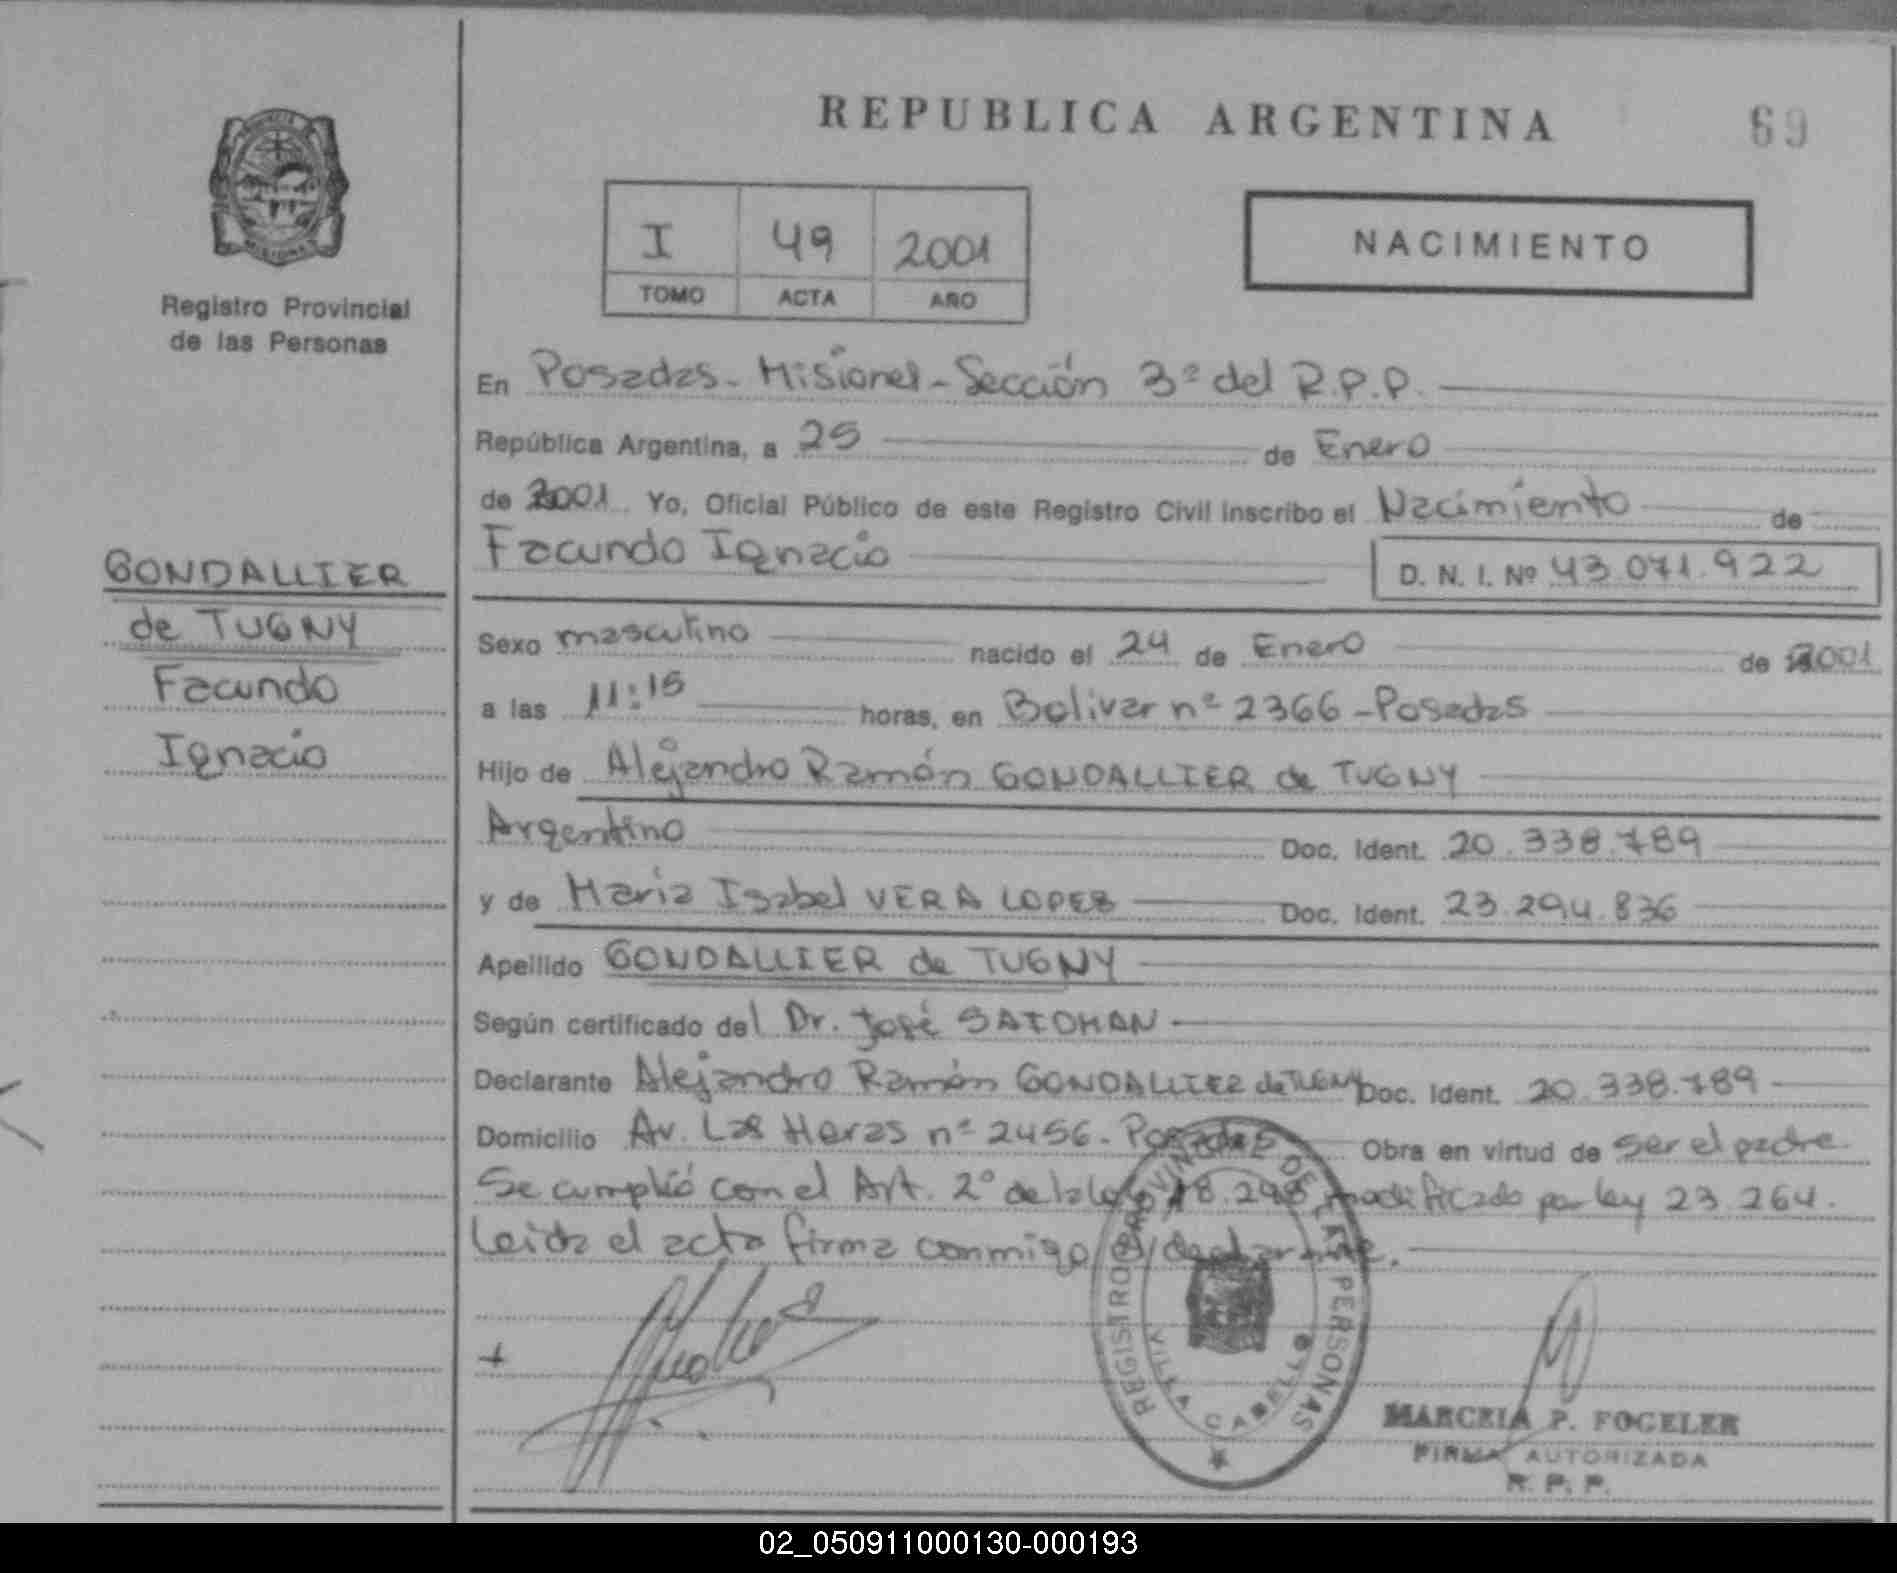 REPUBLICA ARGENTINA
69
PROVINCIA DE MISIONES
Registro Provincial
de las Personas
I 49 2001
TOMO ACTA AÑO
NACIMIENTO
En Posadas - Misiones - Sección 3ª del R.P.P.
República Argentina, a 25 de Enero
de 2001 Yo, Oficial Público de este Registro Civil inscribo el Nacimiento de
Facundo Ignacio D. N. I. Nº 43.071.922
GONDALLIER
de TUGNY
Facundo
Ignacio
Sexo masculino nacido el 24 de Enero de 2001
a las 11:15 horas, en Bolivar nº 2366 - Posadas
Hijo de Alejandro Ramón GONDALLIER de TUGNY
Argentino Doc. Ident. 20.338.789
y de Maria Isabel VERA LOPEZ Doc. Ident. 23.294.836
Apellido GONDALLIER de TUGNY
Según certificado del Dr. José SATOHAN
Declarante Alejandro Ramón GONDALLIER de TUGNY Doc. Ident. 20.338.789
Domicilio Av. Las Heras nº 2456. Posadas Obra en virtud de ser el padre.
Se cumplió con el Art. 2º de la ley 18.248 modificado por ley 23.264.
Leida el acta firma conmigo el declarante.
REGISTRO PROVINCIAL DE LAS PERSONAS
VILLA CABELLO
MARCELA P. FOGELER
FIRMA AUTORIZADA
R. P. P.
02_050911000130-000193